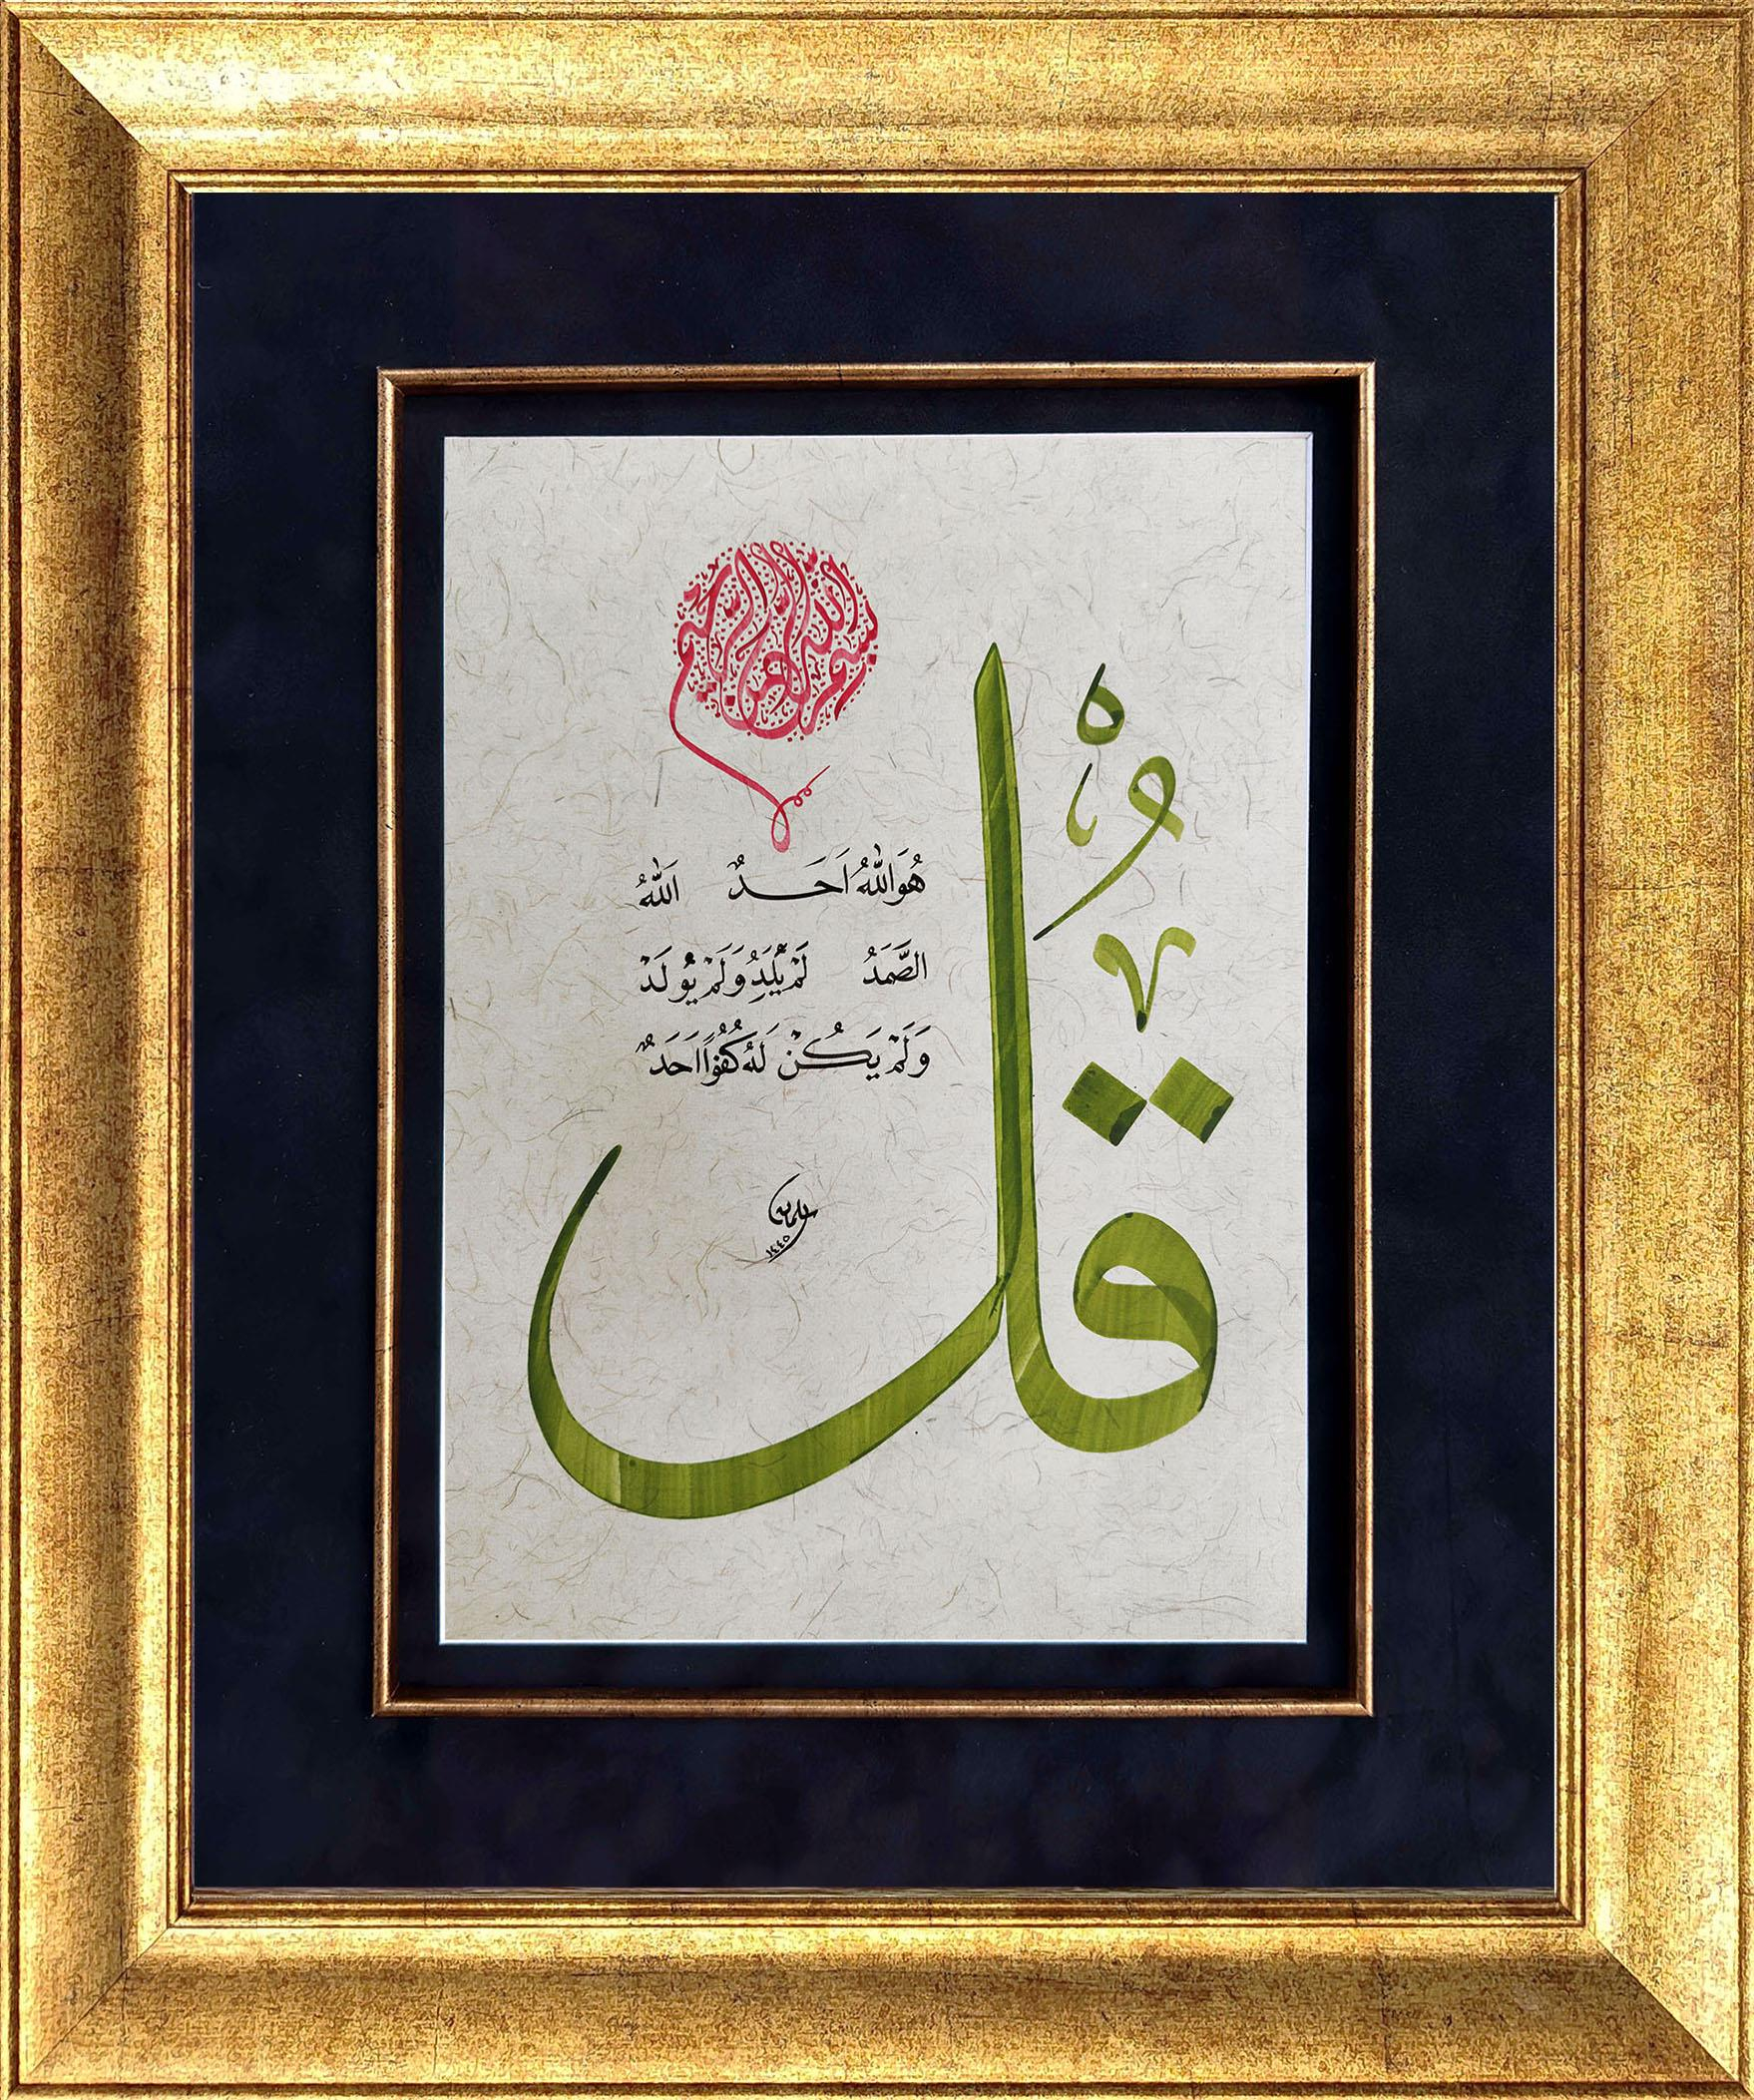 بسم الله الرحمن الرحيم
قُلْ
هُوَ اللّٰهُ اَحَدٌ اَللّٰهُ
الصَّمَدُ لَمْ يَلِدْ وَلَمْ يُولَدْ
وَلَمْ يَكُنْ لَهُ كُفُوًا اَحَدٌ
١٤٤٥